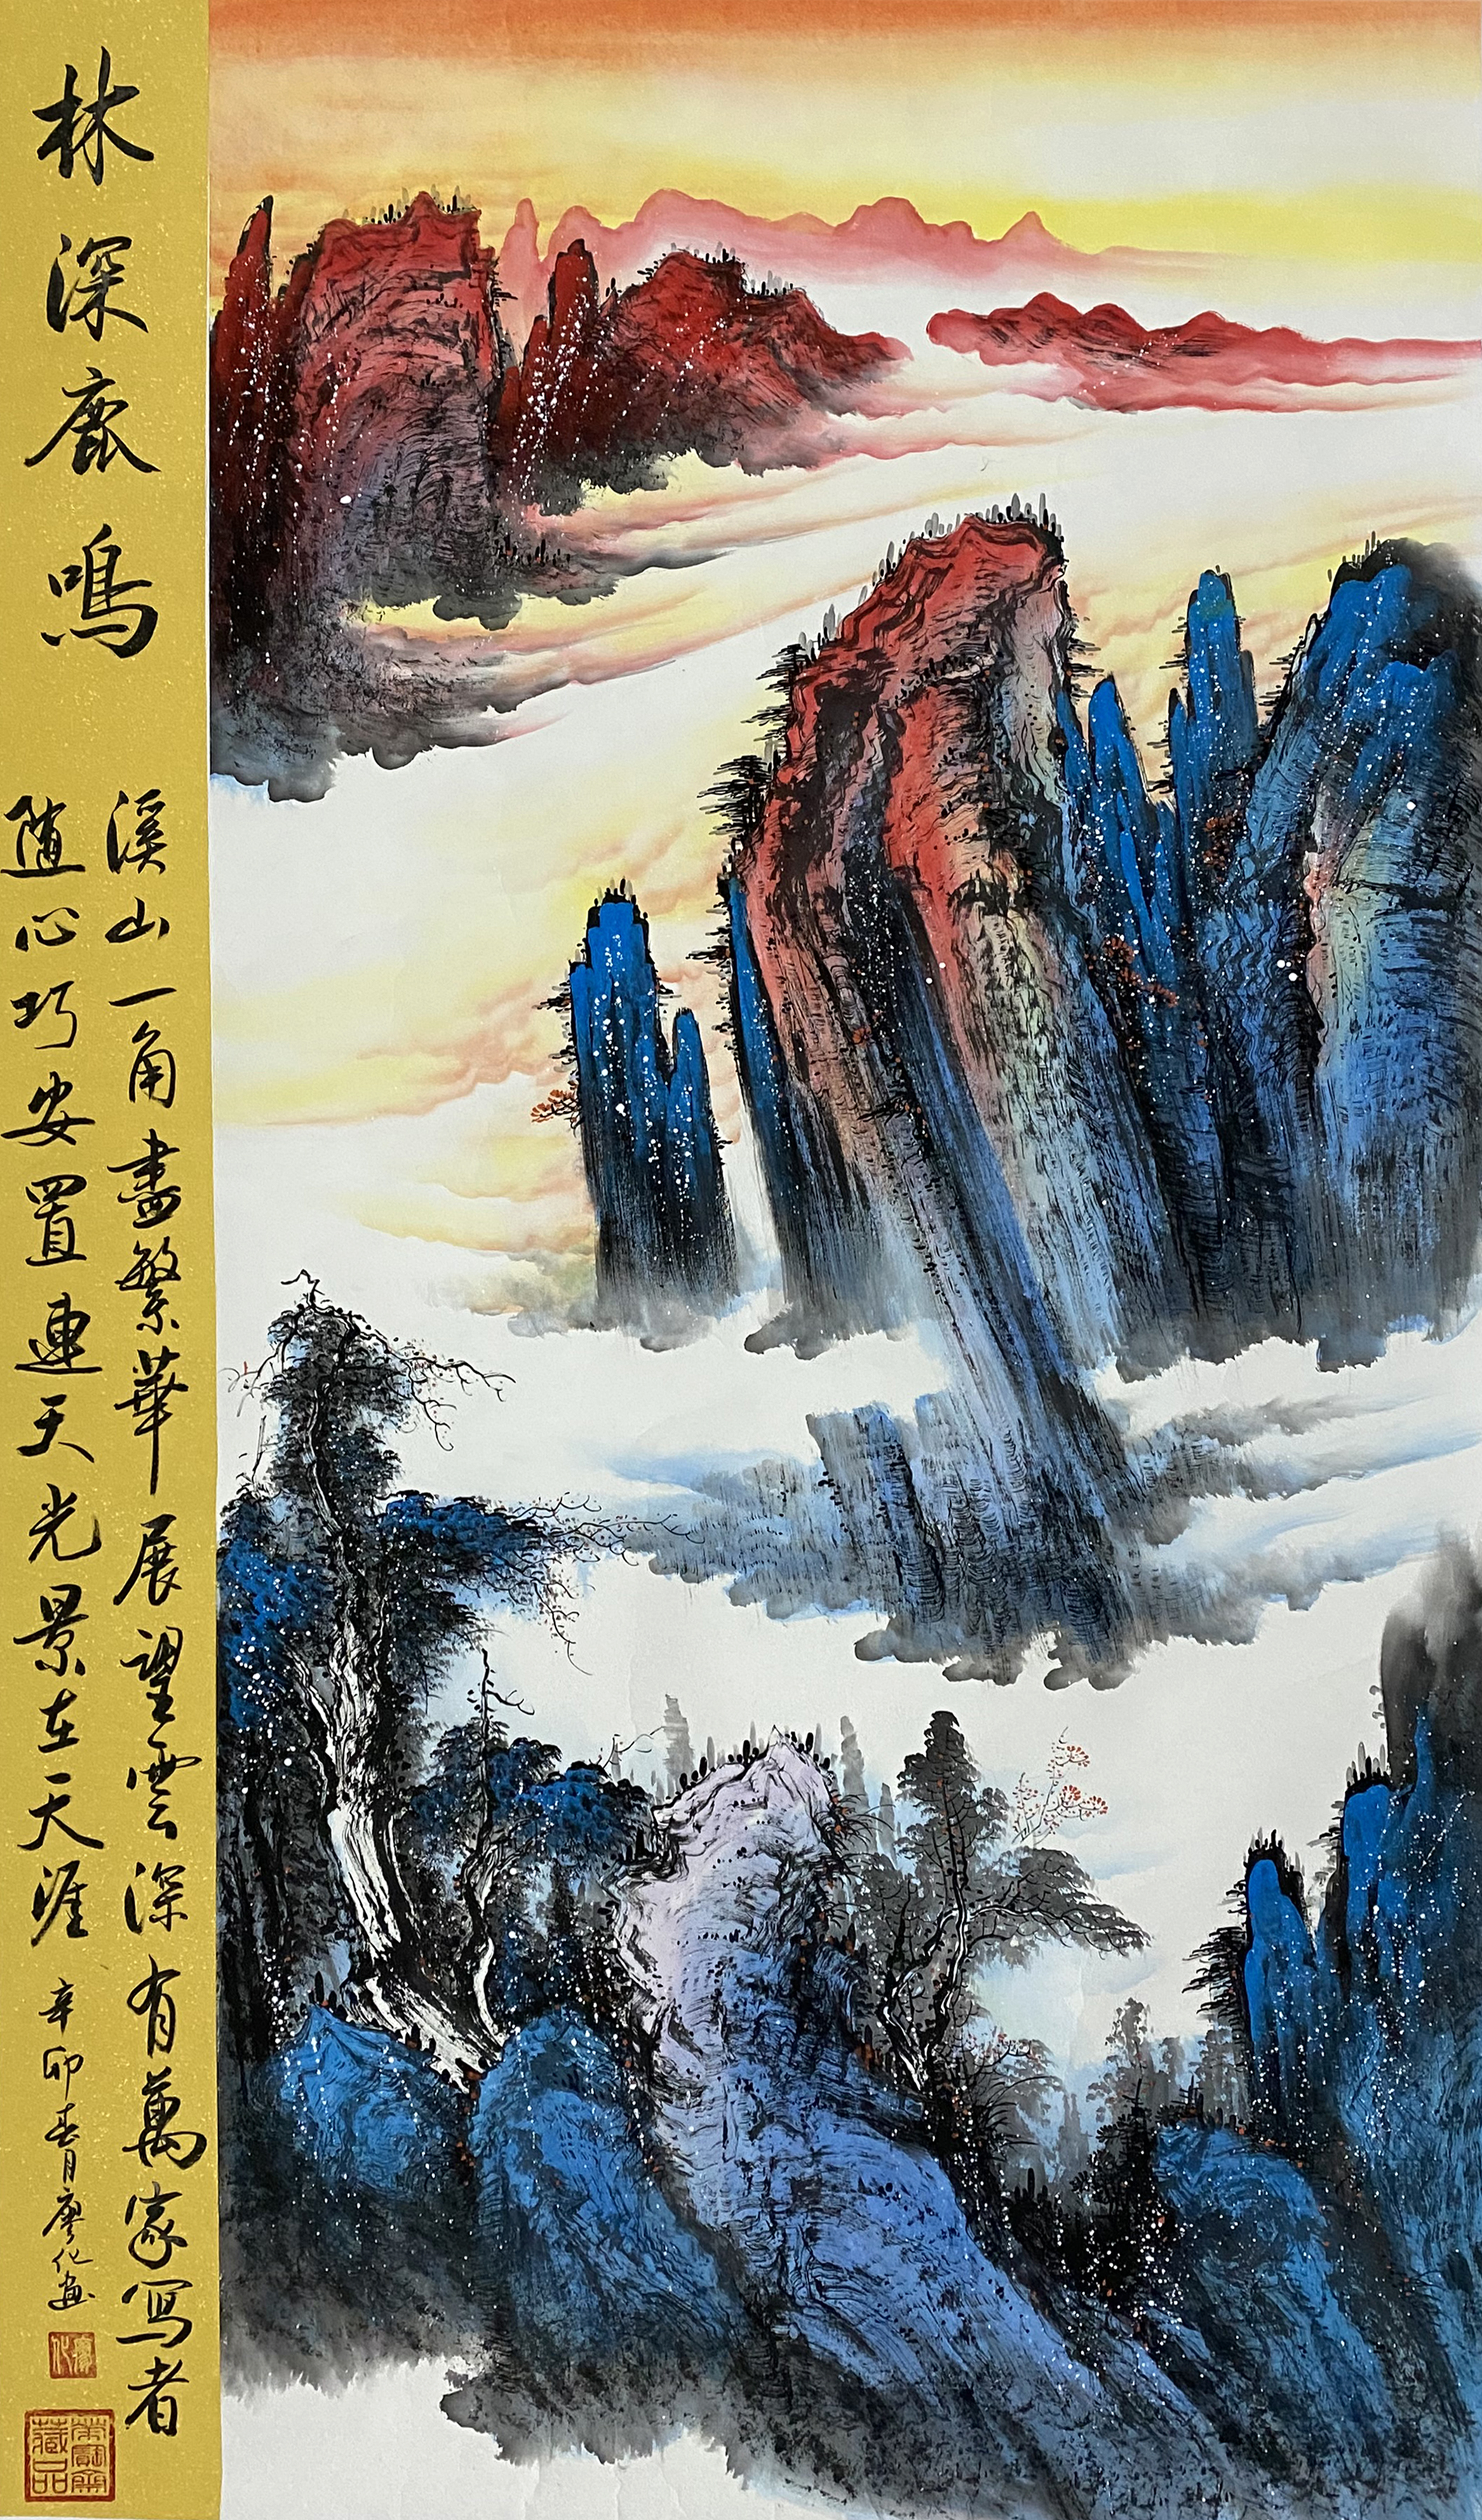 林深鹿鳴
溪山一角盡繁華展望雲深有萬家寫者
隨心巧安置連天光景在天涯
辛卯春月廖化畫
廖化
榮寶齋藏品